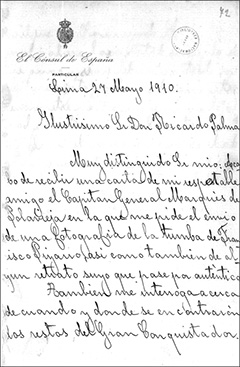 72
El Cónsul de España
PARTICULAR
Lima 27 Mayo 1910.
Ilustrisimo Sr Don Ricardo Palma
Muy distinguido Sr mio: Aca-
bo de recibir una carta de mi respetable
amigo el Capitan General Marqués de
Polavieja en la que me pide el envio
de una fotografia de la tumba de Fran
cisco Pizarro, asi como tambien de al-
gun retrato suyo que pase por auténtico
Tambien me interroga acerca
de cuando y donde se encontraron
los restos del Gran Conquistador.